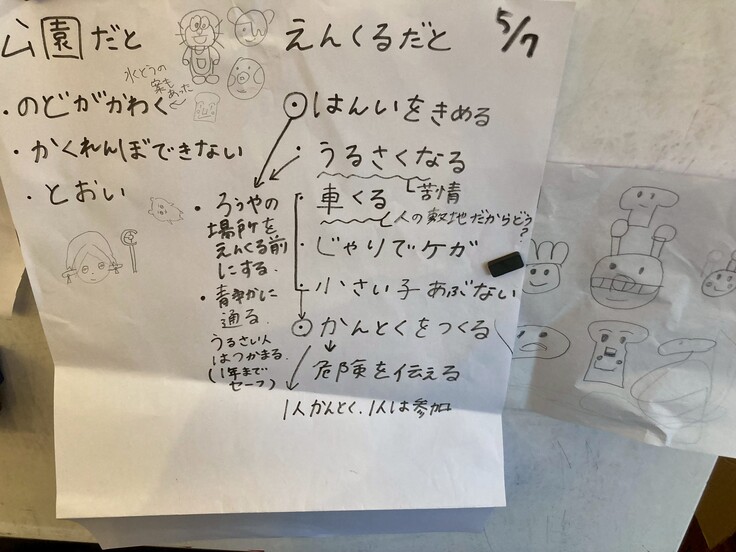 5/7
公園だと
水とうの
案も
あった
・のどがかわく
・かくれんぼできない
・とおい
えんくるだと
⦿はんいをきめる
・うるさくなる
苦情
・車くる
人の敷地だからどう?
・じゃりでケガ
・小さい子あぶない
⦿かんとくをつくる
危険を伝える
1人かんとく、1人は参加
・ろうやの
場所を
えんくる前
にする.
・青静かに
通る.
うるさい人
はつかまる.
(1年まで
セーフ)